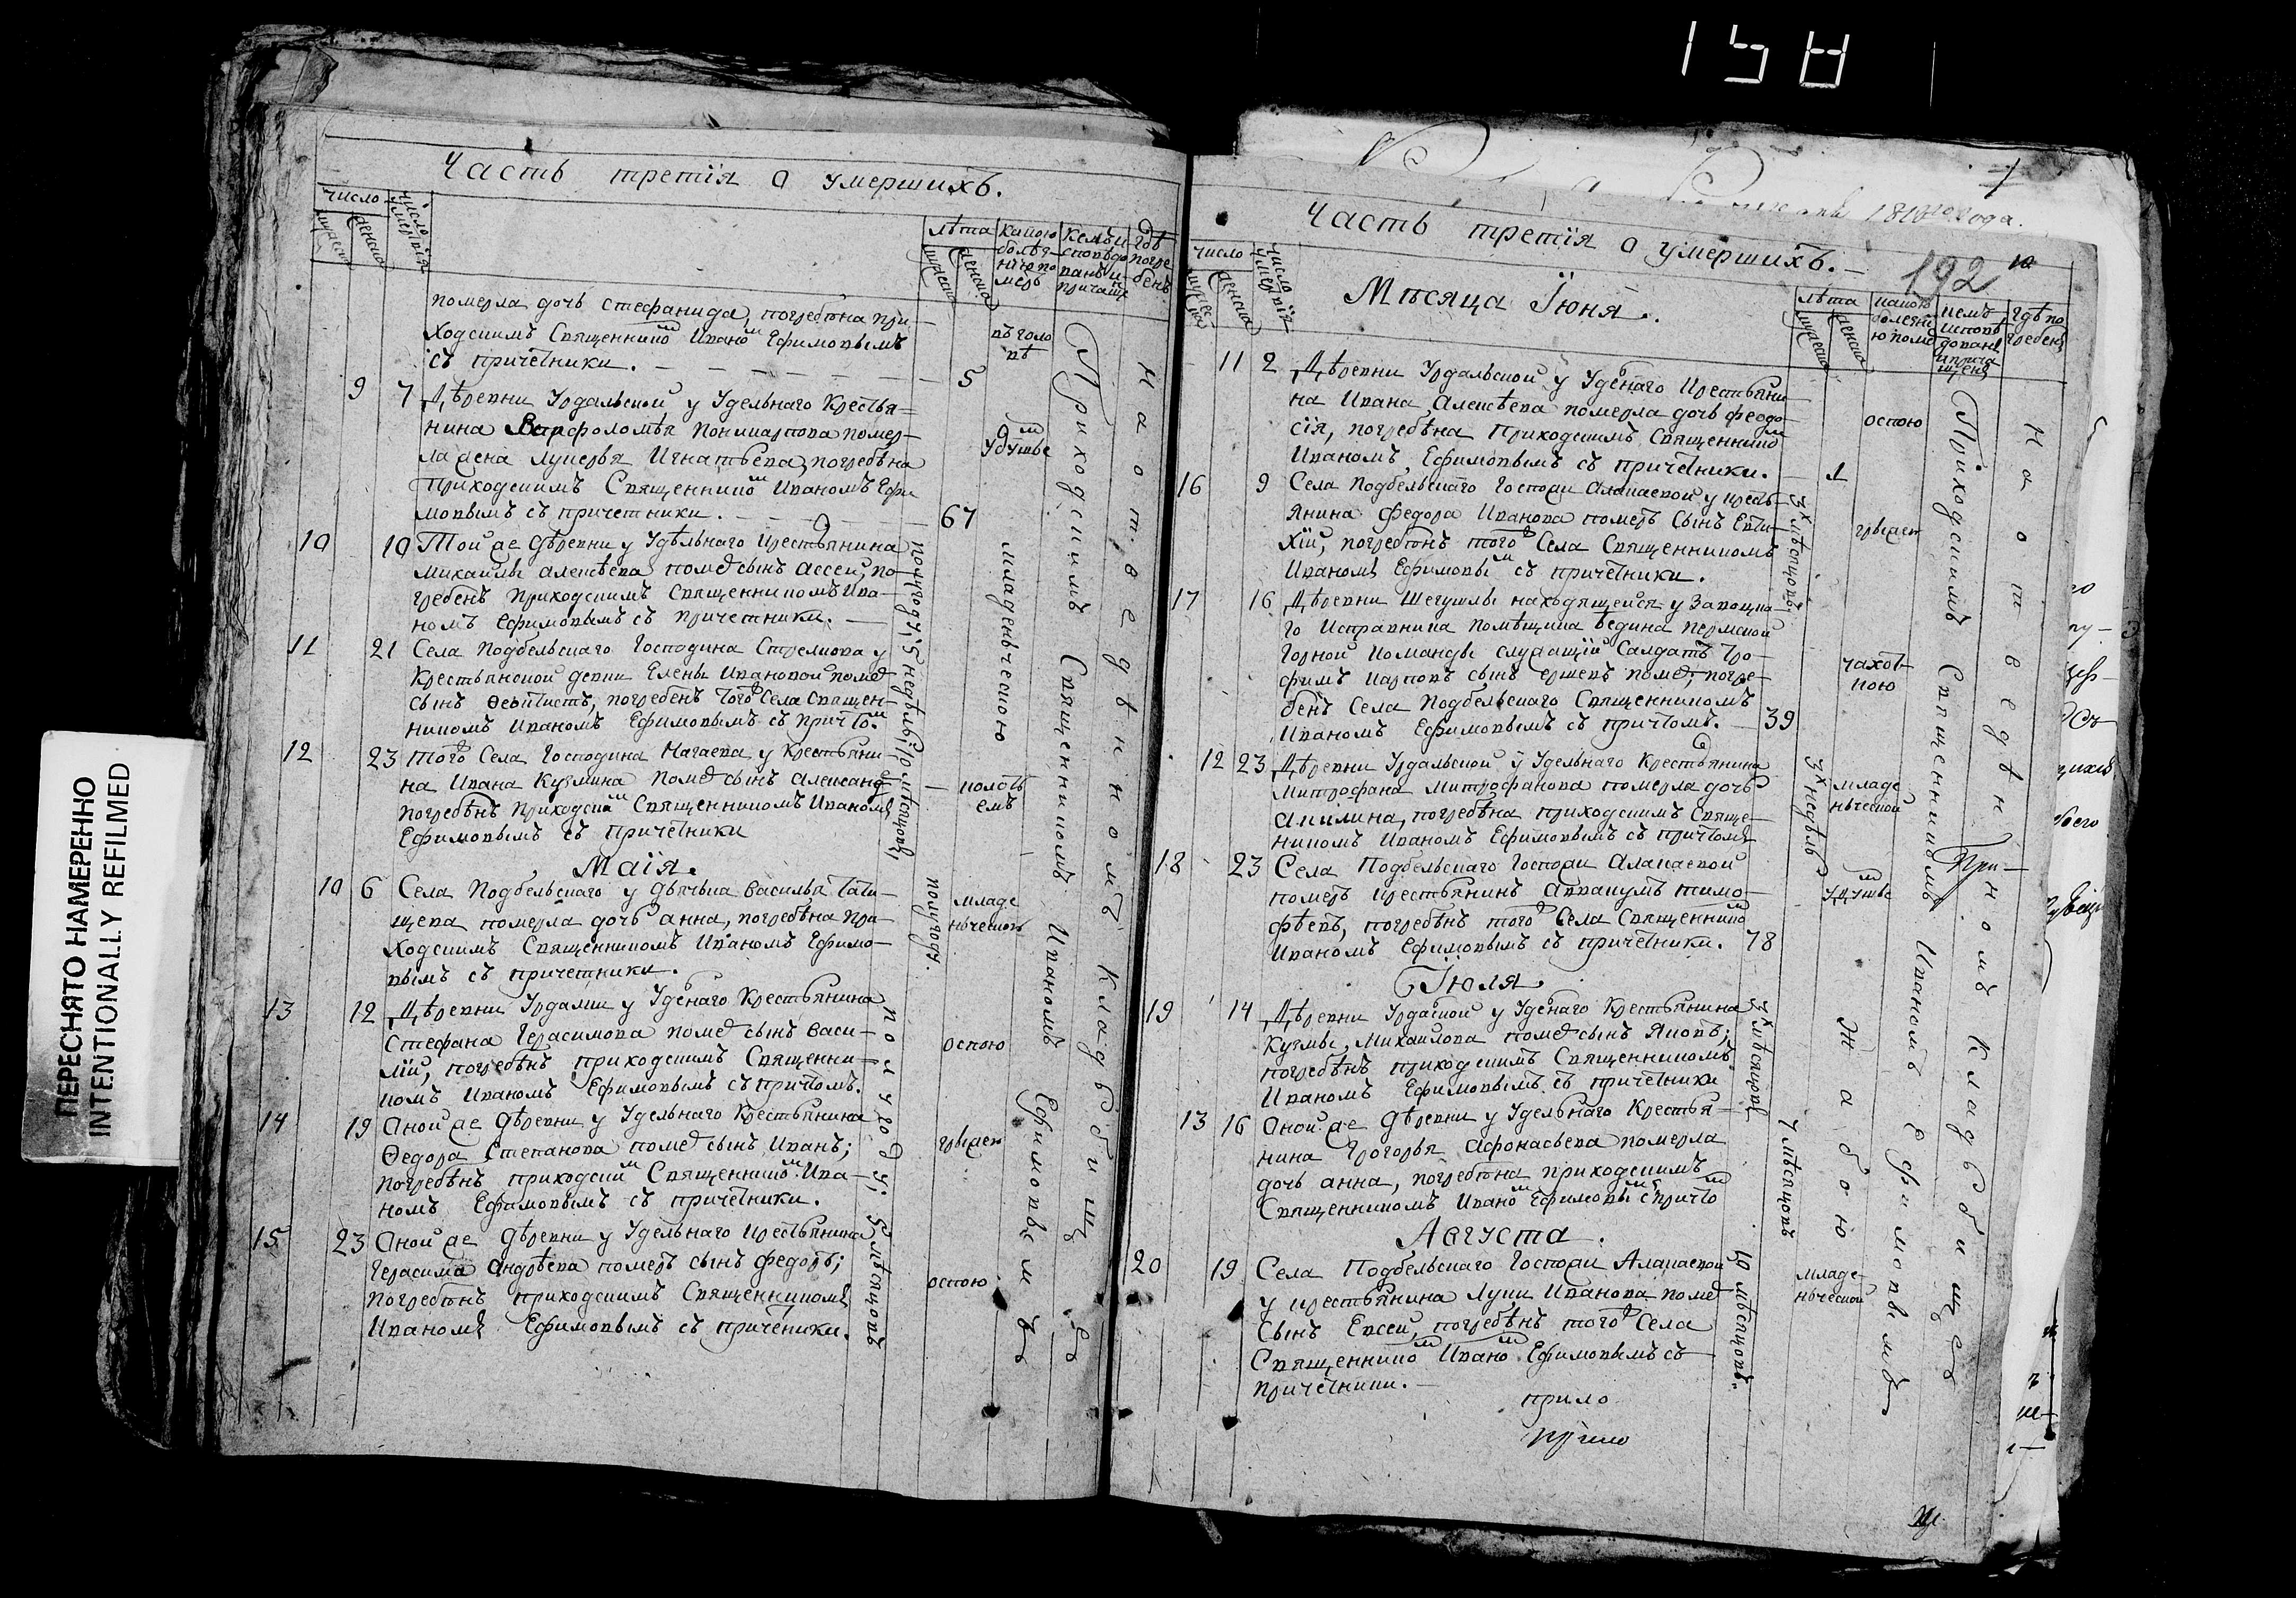 158
ПЕРЕСНЯТО НАМЕРЕННО
INTENTIONALLY REFILMED
Часть третїя о умершихъ.
число
число умертвія
мужеска
женска
лѣта
мужеска
женска
какою болѣзнію померъ
кемъ исповѣдованъ и причащенъ
гдѣ погребенъ
померла дочь Стефанида, погребѣна при-
ходскимъ Священнико^м Ивано^м Ефимовымъ
съ причѣтники.
5
въ голо
вѣ
9 7 Дѣревни Урдальской у Удельнаго Крестья-
нина Варфоломѣя Поликарпова помер-
ла жена Лукерья Игнатьева, погребѣна
приходскимъ Священнико^м Иваномъ Ефи
мовымъ съ причетники.
67
удушье^м
10 10 Той же дѣревни у Удѣльнаго крестьянина
Михайлы Алексѣева поме^р сынъ Аѵксей, по-
гребенъ приходскимъ Священникомъ Ива-
номъ Ефимовымъ съ причетники.
полугоду,
11 21 Села Подбельскаго Господина Стрелкова у
Крестьянской девки Елены Ивановой поме^р
сынъ Ѳеоктистъ, погребенъ того Села Священ-
никомъ Иваномъ Ефимовымъ съ причто^м.
5 недѣль,
младенческою
12 23 Того Села Господина Нагаева у крестьяни
на Ивана Кузмина поме^р сынъ Александ
погребѣнъ приходски^м Священникомъ Иваномъ
Ефимовымъ съ причѣтники
10 мѣсяцовъ,
колоть
емъ
Маїя.
10 6 Села Подбельскаго у дьячька Василья Тати-
щева померла дочь Анна, погребѣна при-
ходскимъ Священникомъ Иваномъ Ефимо-
вымъ съ причетники.
полугоду.
младе
нческою
13 12 Дѣревни Урдалки у Уде^лнаго Крестьянина
Стефана Герасимова поме^р сынъ Васи-
лїй, погребѣнъ приходскимъ Священни-
комъ Иваномъ Ефимовымъ съ причтомъ.
полугоду;
оспою
14 19 Оной же дѣревни у Удельнаго Крестьянина
Ѳедора Степанова поме^р сынъ Иванъ;
погребѣнъ приходски^м Священнико^м Ива-
номъ Ефимовымъ съ причѣтники.
грыжею
15 23 Оной же дѣревни у Удельнаго крестьянина
Герасима Андрѣева померъ сынъ Федоръ;
погребѣнъ приходскимъ Священникомъ
Иваномъ Ефимовымъ съ причѣтники.
5 мѣсяцовъ
оспою
Приходскимъ Священникомъ Иваномъ Ефимовымъ
На отведѣнномъ кладьбищѣ
1810^го года.
Часть третїя о умершихъ.
192
число
число умертвія
Мѣсяца Їюня.
лѣта
какою болезнію поме^р
кемъ исповѣдованъ и причащенъ
гдѣ погребенъ
11 2 Дѣревни Урдальской у Уде^лнаго Крестьяни-
на Ивана Алексѣева померла дочь Феодо-
сїя, погребѣна приходскимъ Священнико^м
Иваномъ Ефимовымъ съ причѣтники.
1
оспою
16 9 Села Подбельскаго Господи Алакаевой у кресть-
янина Федора Иванова померъ сынъ Евти-
хїй, погребѣнъ того Села Священникомъ
Иваномъ Ефимовы^м съ причѣтники.
3^х мѣсяцовъ
грыжею
17 16 Дѣревни Шегушлы находящейся у
го Исправника помѣщика Ведина пермской
Горной команды служащїй Салдатъ Тро-
фимъ Карповъ сынъ Ершевъ поме^р, погре-
бенъ Села Подбельскаго Священникомъ
Иваномъ Ефимовымъ съ причтомъ.
39
чахот-
кою
12 23 Дѣревни Урдальской у Удельнаго Крестьянина
Митрофана Митрофанова померла дочь
Акилина, погребѣна приходскимъ Свяще-
никомъ Иваномъ Ефимовымъ съ причтомъ
3^х недѣль
младе
нческой
18 23 Села Подбельскаго Господи Алакаевой
померъ крестьянинъ Аввакумъ Тимо-
фѣевъ, погребѣнъ того Села Священнико^м
Иваномъ Ефимовымъ съ причѣтники.
78
удушье^м
Їюля
19 14 Дѣревни Урда^лской у Уде^лнаго Крестьянина
Кузмы Михайлова поме^р сынъ Яковъ;
погребѣнъ приходскимъ Священникомъ
Иваномъ Ефимовымъ съ причѣтники
3^х мѣсяцовъ
Жабою
13 16 Оной же дѣревни у Удельнаго Крестья-
нина Григорья Афонасьева померла
дочь Анна, погребѣна приходскимъ
Священникомъ Ивано^м Ефимовы^м с причто^м
7 мѣсяцовъ
Августа.
20 19 Села Подбельскаго Господи Алакаевой
у крестьянина Луки Иванова поме^р
сынъ Евсей, погребѣнъ того Села
Священнико^м Ивано^м Ефимовымъ съ
причѣтники.
10 мѣсяцовъ.
младе-
нческой
Приходскимъ Священникомъ Иваномъ Ефимовымъ
На отведѣнномъ кладьбищѣ